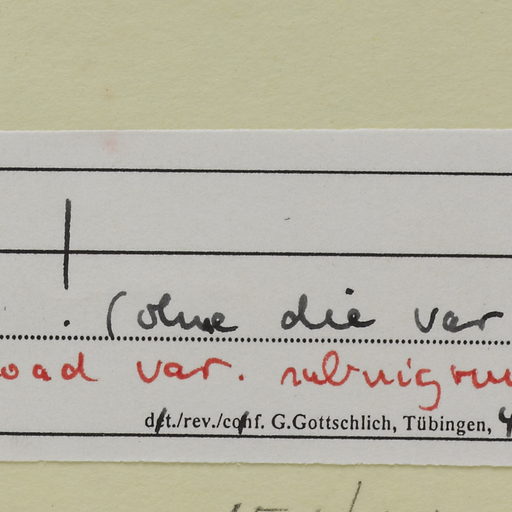 ! (ohne die var
oad var. subnigrum
det./rev./conf. G.Gottschlich, Tübingen, 4